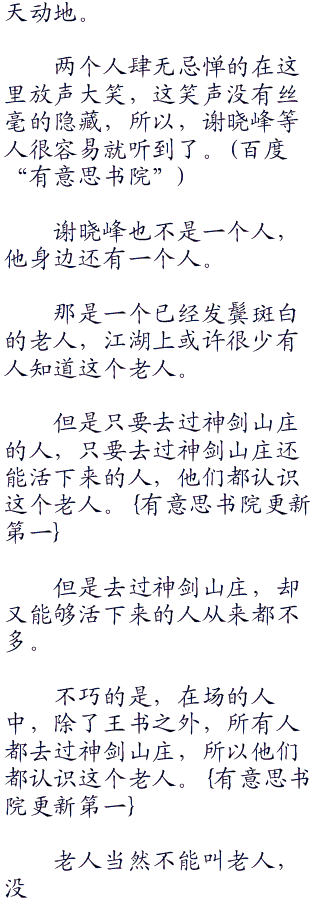 天动地。
两个人肆无忌惮的在这
里放声大笑，这笑声没有丝
毫的隐藏，所以，谢晓峰等
人很容易就听到了。(百度
“有意思书院”)
谢晓峰也不是一个人，
他身边还有一个人。
那是一个已经发鬓斑白
的老人，江湖上或许很少有
人知道这个老人。
但是只要去过神剑山庄
的人，只要去过神剑山庄还
能活下来的人，他们都认识
这个老人。{有意思书院更新
第一}
但是去过神剑山庄，却
又能够活下来的人从来都不
多。
不巧的是，在场的人
中，除了王书之外，所有人
都去过神剑山庄，所以他们
都认识这个老人。{有意思书
院更新第一}
老人当然不能叫老人，
没